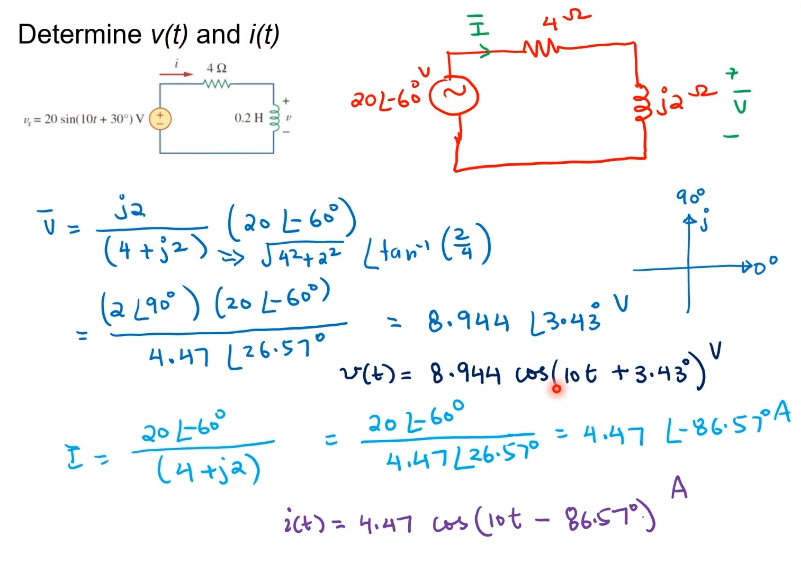 Determine v(t) and i(t)
i 4 Ω
vs = 20 sin(10t + 30°) V + − 0.2 H + v −
Ī 4 Ω
20∠-60° V ~ j2 Ω + V̄ −
V̄ = j2 / (4 + j2) (20 ∠-60°) ⇒ √4² + 2² ∠tan⁻¹ (2/4)
90°
j
0°
= (2 ∠90°) (20 ∠-60°) / 4.47 ∠26.57° = 8.944 ∠3.43° V
v(t) = 8.944 cos(10t + 3.43°) V
I = 20∠-60° / (4 + j2) = 20 ∠-60° / 4.47∠26.57° = 4.47 ∠-86.57° A
i(t) = 4.47 cos(10t − 86.57°) A